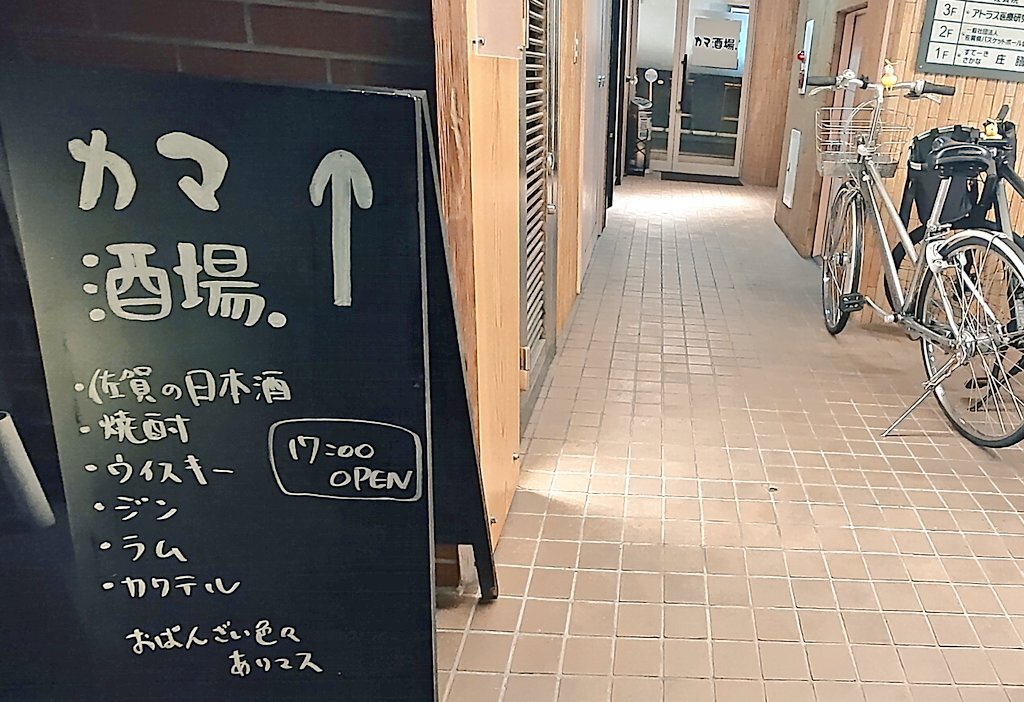 カマ
酒場.
・佐賀の日本酒
・焼酎
・ウイスキー
・ジン
・ラム
・カクテル
17:00
OPEN
おばんざい色々
ありマス
カマ酒場.
3F アトラス医療研
2F 一般社団法人
佐賀県バスケットボール
1F すてーき
さかな 庄